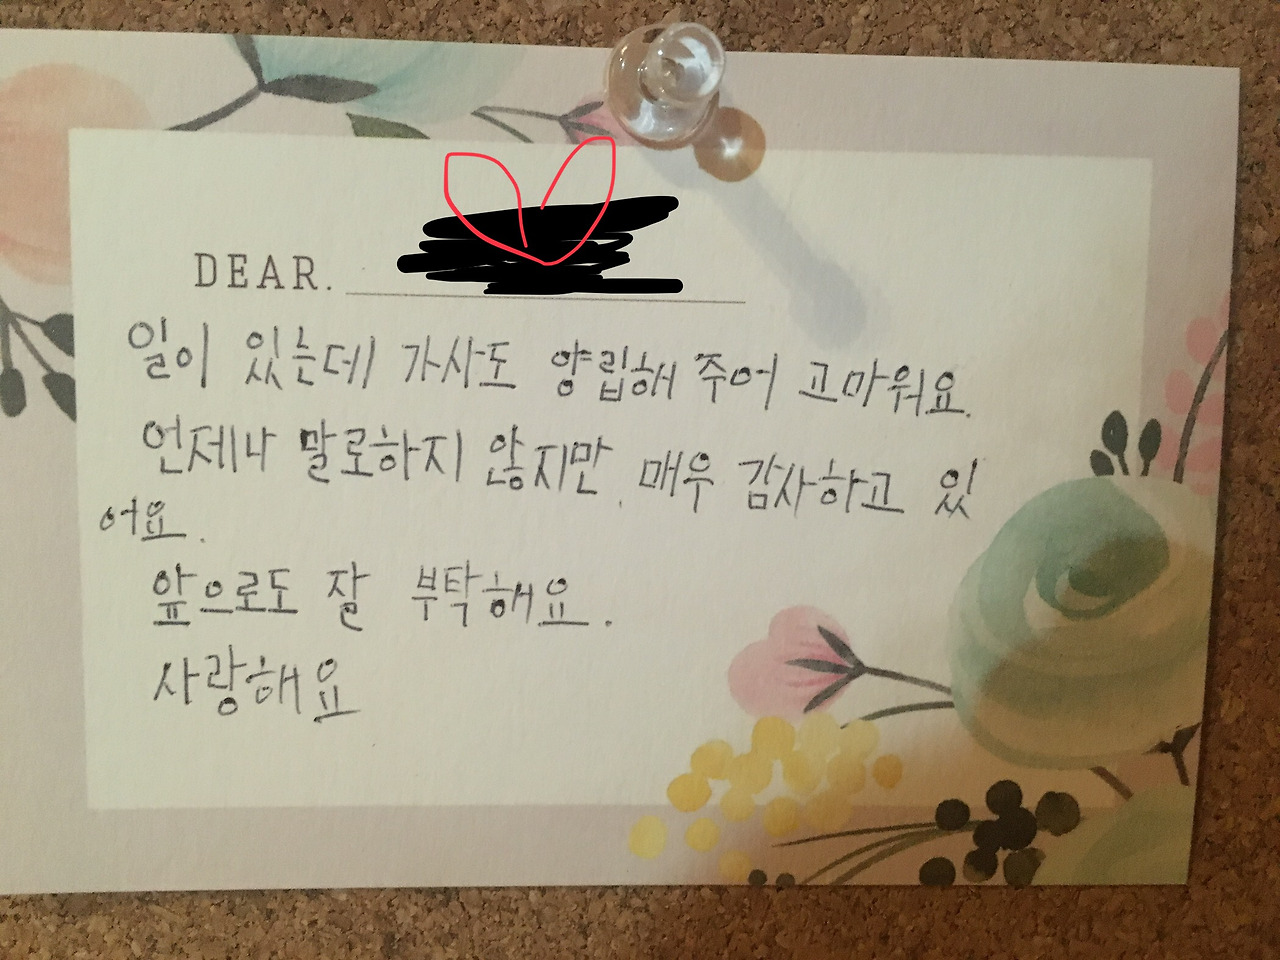 DEAR.
일이 있는데 가사도 양립해 주어 고마워요.
언제나 말로하지 않지만, 매우 감사하고 있
어요.
앞으로도 잘 부탁해요.
사랑해요